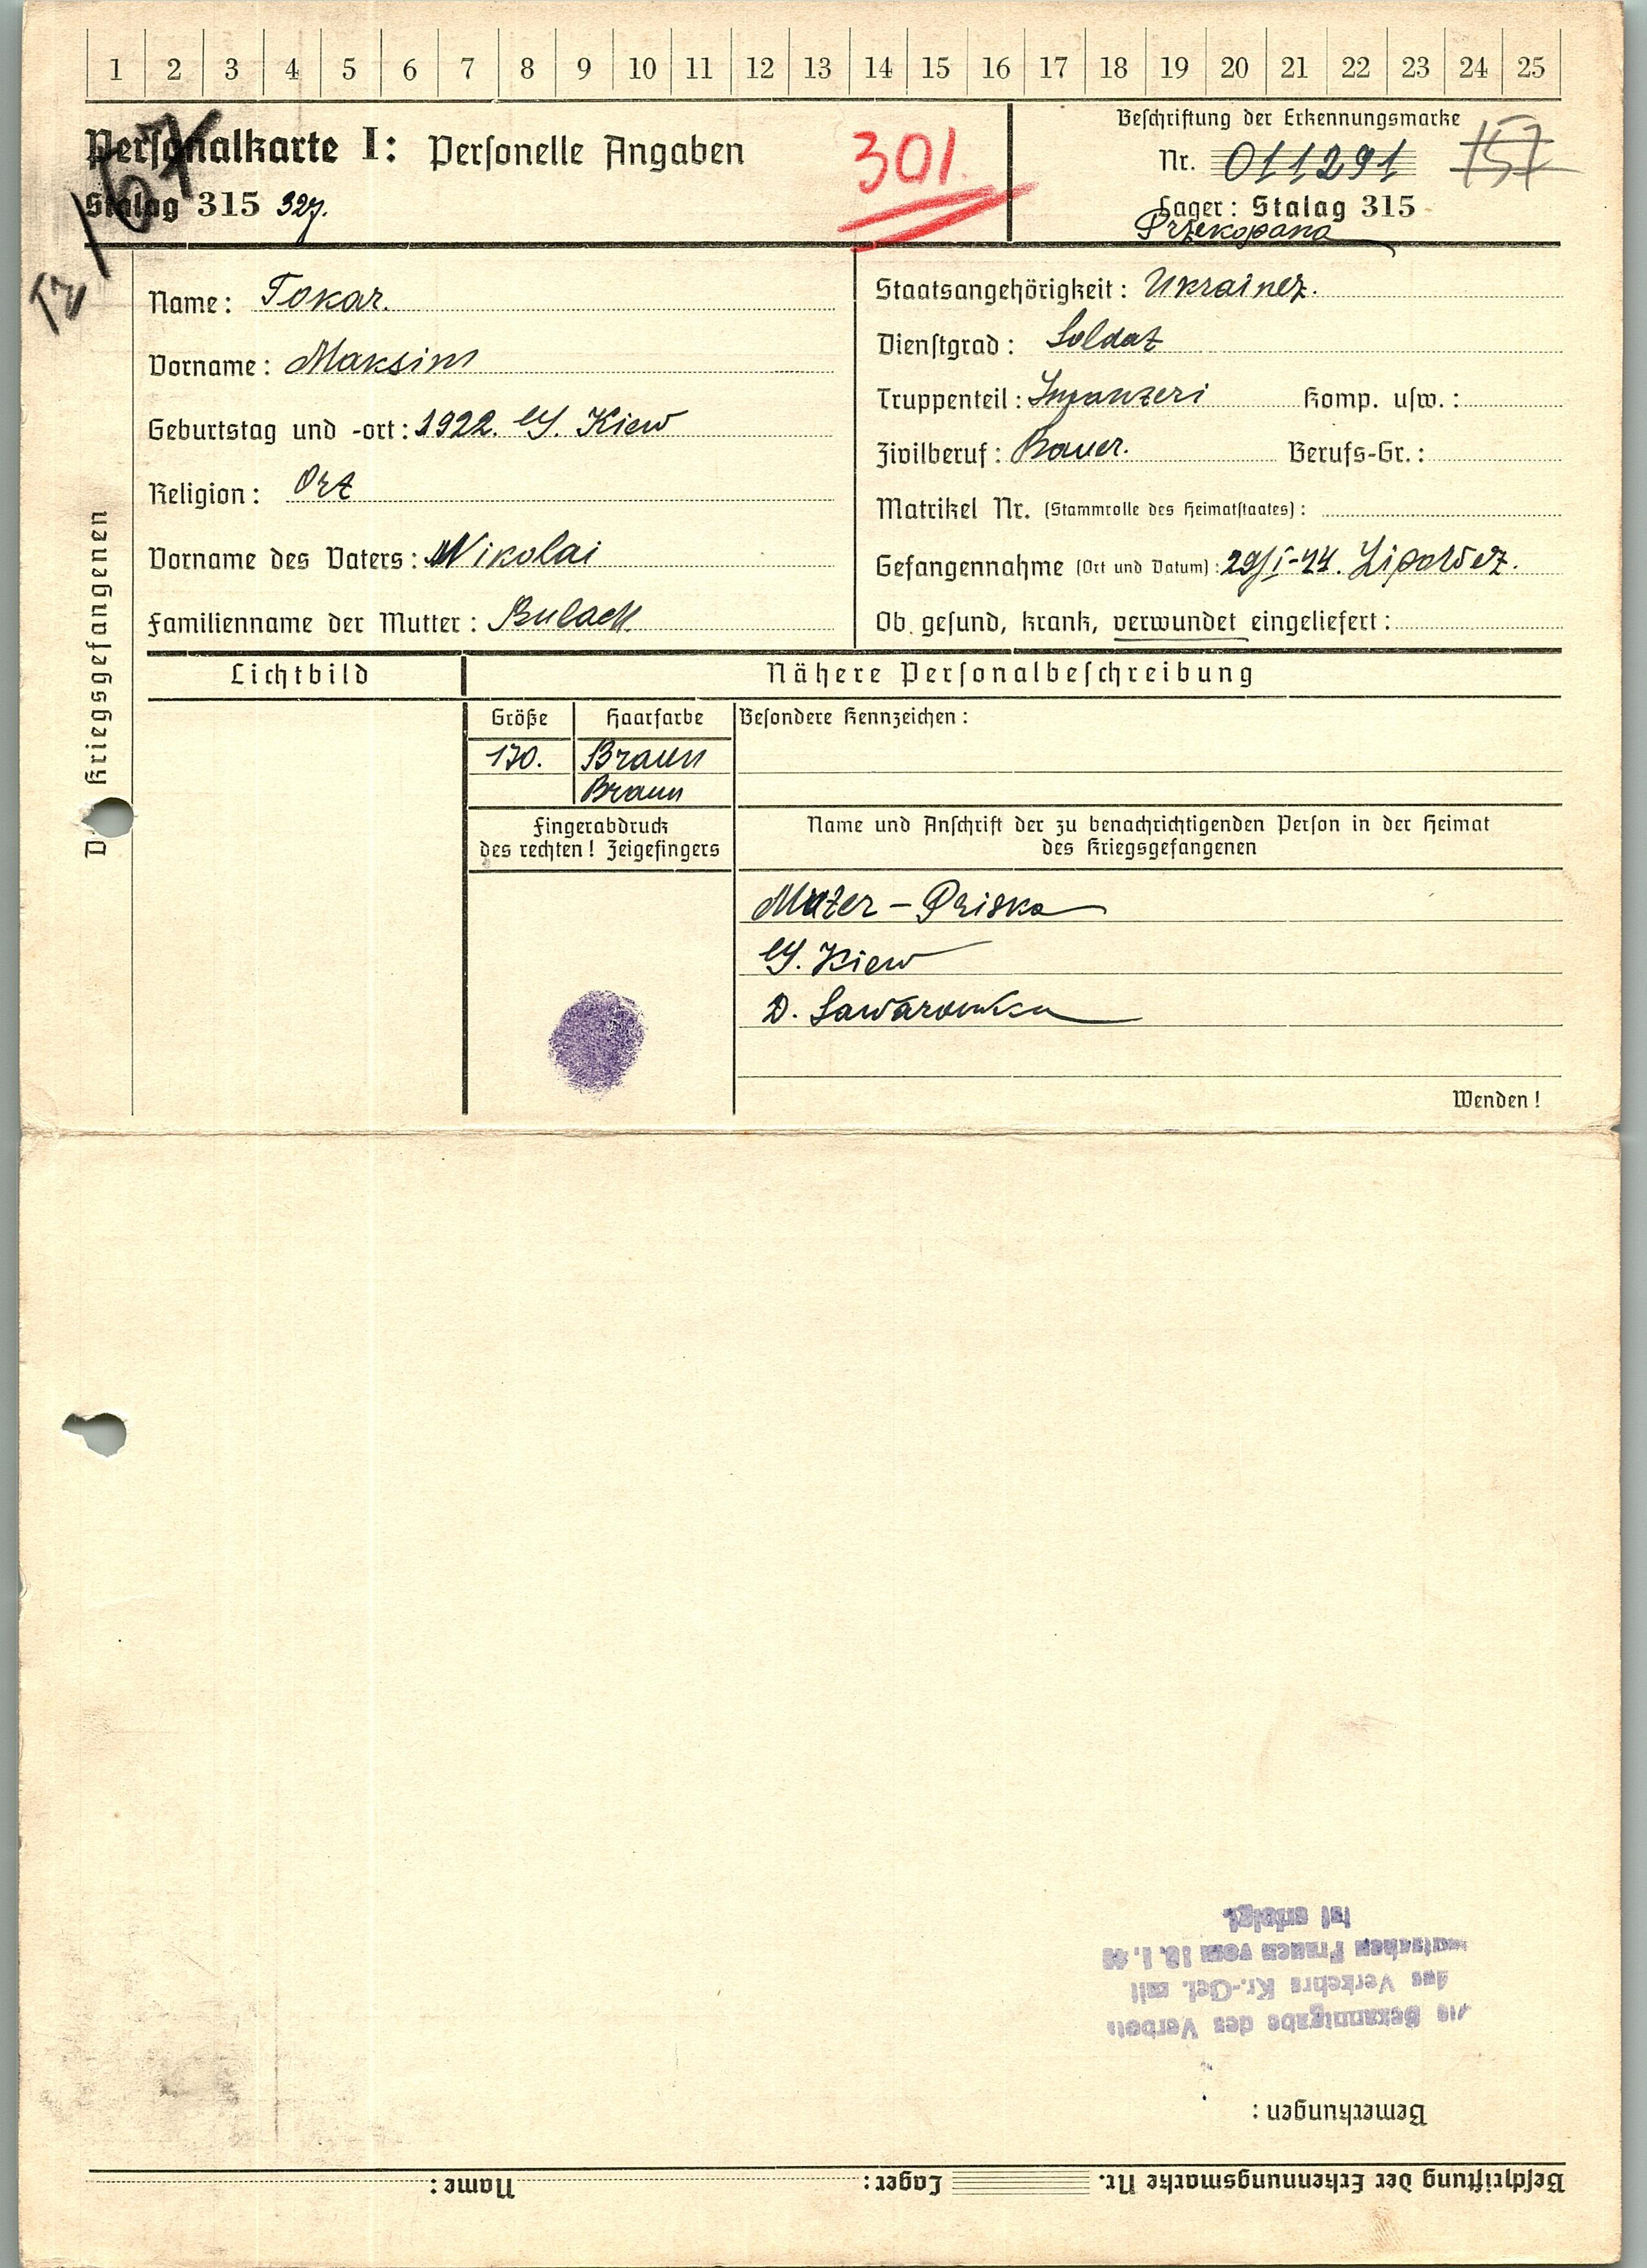 1 2 3 4 5 6 7 8 9 10 11 12 13 14 15 16 17 18 19 20 21 22 23 24 25
Personalkarte I: Personelle Angaben
301.
Stalag 315 327.
Beschriftung der Erkennungsmarke
Nr. 011291 157
Lager: Stalag 315
Przekopana
Name: Tokar.
Vorname: Maksim
Geburtstag und -ort: 1922. Kiew
Religion: Ort
Vorname des Vaters: Nikolai
Familienname der Mutter: Bulach
Staatsangehörigkeit: Ukrainer.
Dienstgrad: Soldat
Truppenteil: Infanteri Komp. usw.:
Zivilberuf: Bauer. Berufs-Gr.:
Matrikel Nr. (Stammrolle des Heimatstaates):
Gefangennahme (Ort und Datum): 29/I-44. Lipowez.
Ob gesund, krank, verwundet eingeliefert:
Des Kriegsgefangenen
Lichtbild
Nähere Personalbeschreibung
Größe Haarfarbe Besondere Kennzeichen:
170. Braun
Braun
Fingerabdruck
des rechten! Zeigefingers
Name und Anschrift der zu benachrichtigenden Person in der Heimat
des Kriegsgefangenen
Muter - Priska
Kiew
D.
Wenden!
Beschriftung der Erkennungsmarke Nr. Lager: Name:
Bemerkungen:
Die Bekanntgabe des Verbots
des Verkehrs Kr.-Gef. mit
deutschen Frauen vom 10.1.40
ist erfolgt.